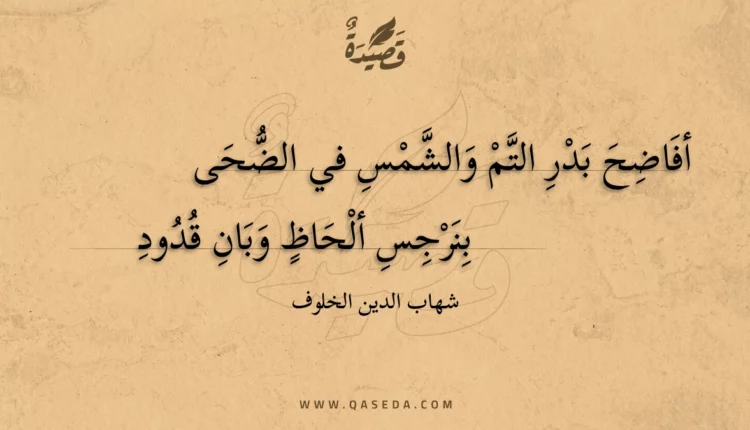 قَصِيْدَةٌ
أفَاضِحَ بَدْرِ التَّمْ وَالشَّمْسِ في الضُّحَى
بِنَرْجِسِ ألْحَاظٍ وَبَانِ قُدُودِ
شهاب الدين الخلوف
WWW.QASEDA.COM